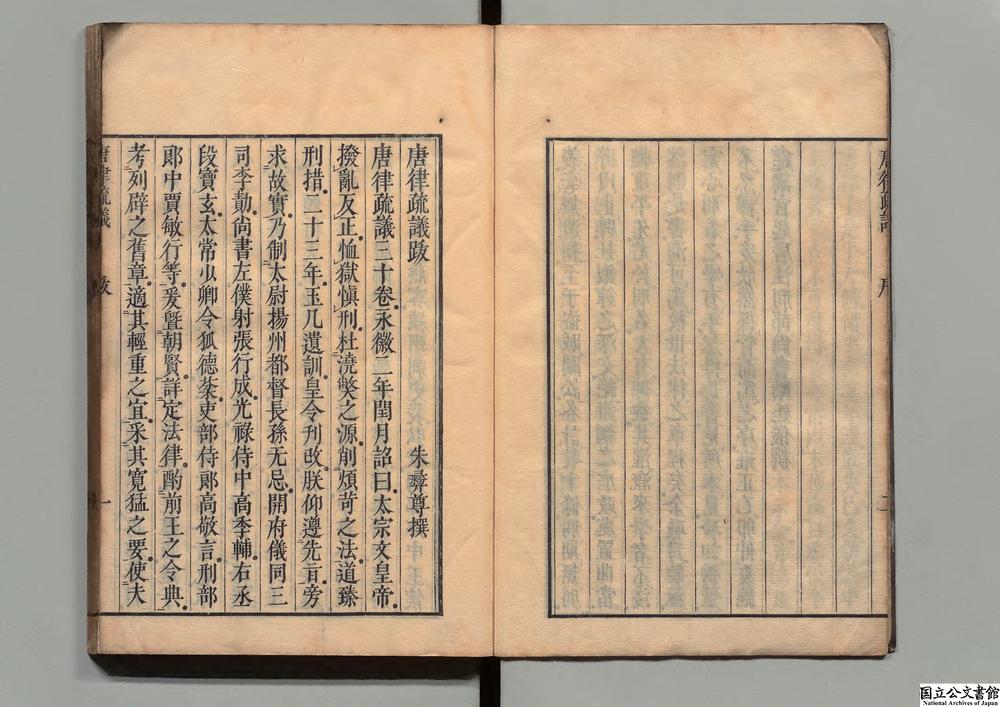 唐律疏議跋
朱彞尊撰
唐律疏議三十卷永徽二年閏月詔曰太宗文皇帝
撥亂反正恤獄愼刑杜澆獘之源削煩苛之法道臻
刑措二十三年玉几遺訓皇令刋改朕仰遵先旨旁
求故實乃制太尉揚州都督長孫无忌開府儀同三
司李勣尙書左僕射張行成光祿侍中高季輔右丞
段寶玄太常少卿令狐德棻吏部侍郞高敬言刑部
郞中賈敏行等爰曁朝賢詳定法律酌前王之令典
考列辟之舊章適其輕重之宜采其寬猛之要使夫
唐律疏議
跋
一
国立公文書館
National Archives of Japan